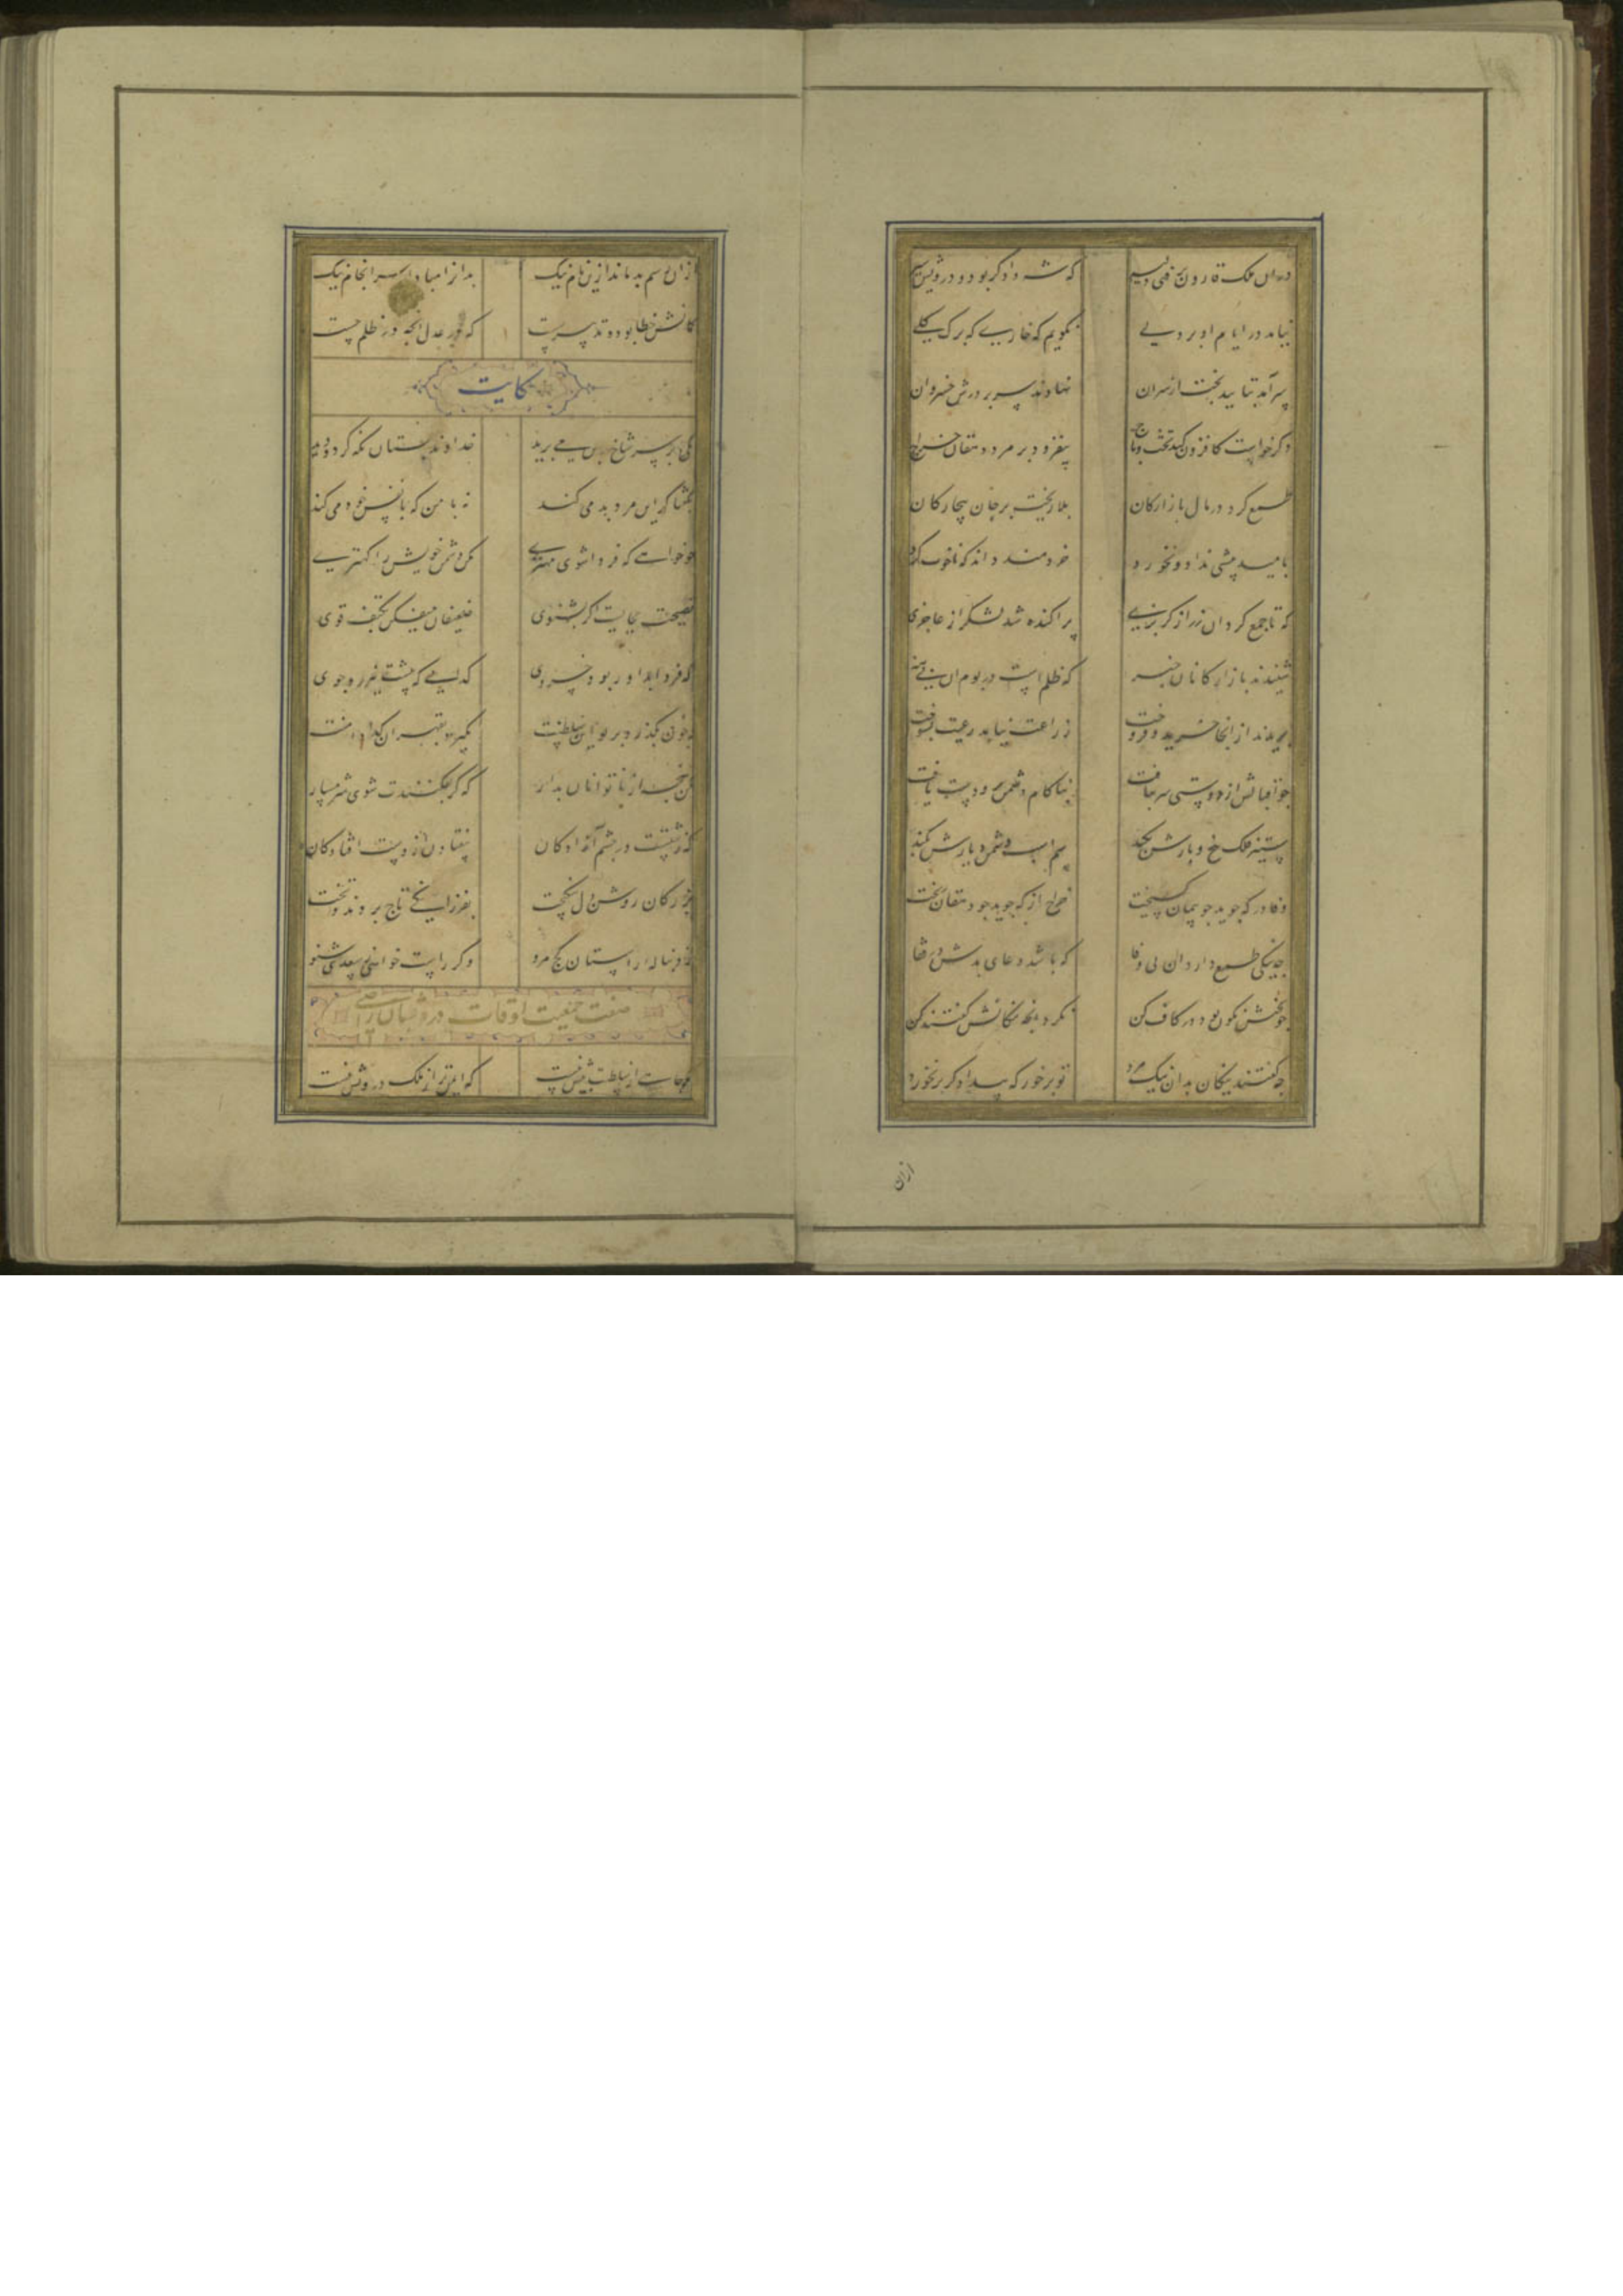 دران ملک قارون برفتی دلیر که شه دادگر بود و درویش سیر
نیامد در ایام او بر دلی نگویم که خاری که برگ گلی
سرآمد بتایید بخت از سران نهادند سر بر درش خسروان
دگر خواست کافزون کند تخت و تاج بیفزود بر مرد دهقان خراج
طمع کرد در مال بازارکان بلا ریخت بر جان بیچارکان
بامید بیشی نداد و نخورد خردمند داند که ناخوب کرد
که تا جمع کرد ان زر از کربزی پراکنده شد لشکر از عاجزی
شنیدند بازارکانان خبر که ظلم است در بوم ان بی هنر
بریدند از انجا خرید و فروخت زراعت نیامد رعیت بسوخت
چو اقبالش از دوستی سر بتافت بناکام دشمن برو دست یافت
ستیز فلک بیخ و بارش بکند سم اسب دشمن دیارش بکند
وفا در که جوید چو پیمان کسیخت خراج از که جوید چو دهقان کریخت
چه نیکی طمع دارد ان بی وفا که باشد دعای بدش در قفا
چو بختش نکون بود در کاف کن نکرد انچه نیکانش کفتند کن
چه کفتند نیکان بدان نیک مرد تو برخور که بیدادکر برنخورد
ازان
ازان رسم بد ماند ازین نام نیک بد ازا مبادا سرانجام نیک
کمانش خطا بود و تدبیر سست که در عدل انچه در ظلم جست
حکایت
یکی بر سر شاخ بن می برید خداوند بستان نکه کرد و دید
بکفتا کر این مرد بد می کند نه با من که با نفس خود می کند
چو خواهی که فردا شوی مهتری مکن دشمن خویش را کهتری
نصیحت بجایست اکر بشنوی ضعیفان میفکن بکتف قوی
که فردا بداور بود خسروی کدایی که پیشت نیرزد جوی
چو خون بکذرد بر تو این سلطنت بکیرد بقهر ان کدا دامنت
مکن پنجه از ناتوانان بدار که کر بفکنندت شوی شرمسار
که زشتست در چشم آزادکان بیفتادن از دست افتادکان
بزرکان روشن دل نیکبخت بفرزانکی تاج بردند و تخت
بدنباله راستان کج مرو وکر راست خواهی ز سعدی شنو
صفت جمعیت اوقات درویشان راضی
مکو جاهی از سلطنت بیش نیست که ایمن تر از ملک درویش نیست